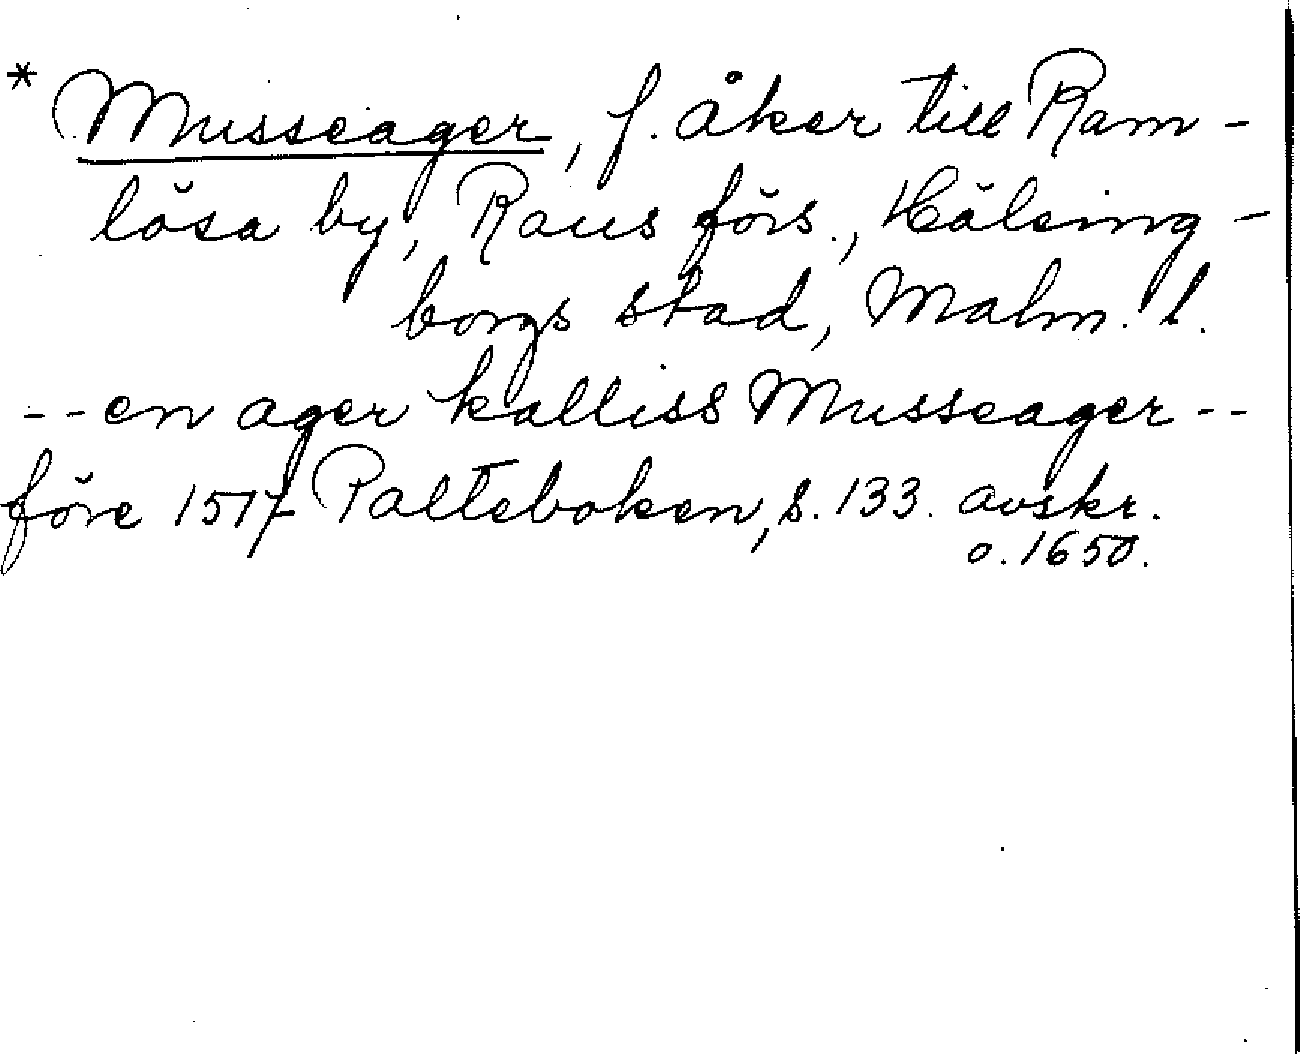 * Musseager, f. åker till Ram-
lösa by, Raus förs., Hälsing-
borgs stad, Malm. l.
--en ager kalliss Musseager--
före 1517 Palteboken, s. 133. avskr.
o. 1650.